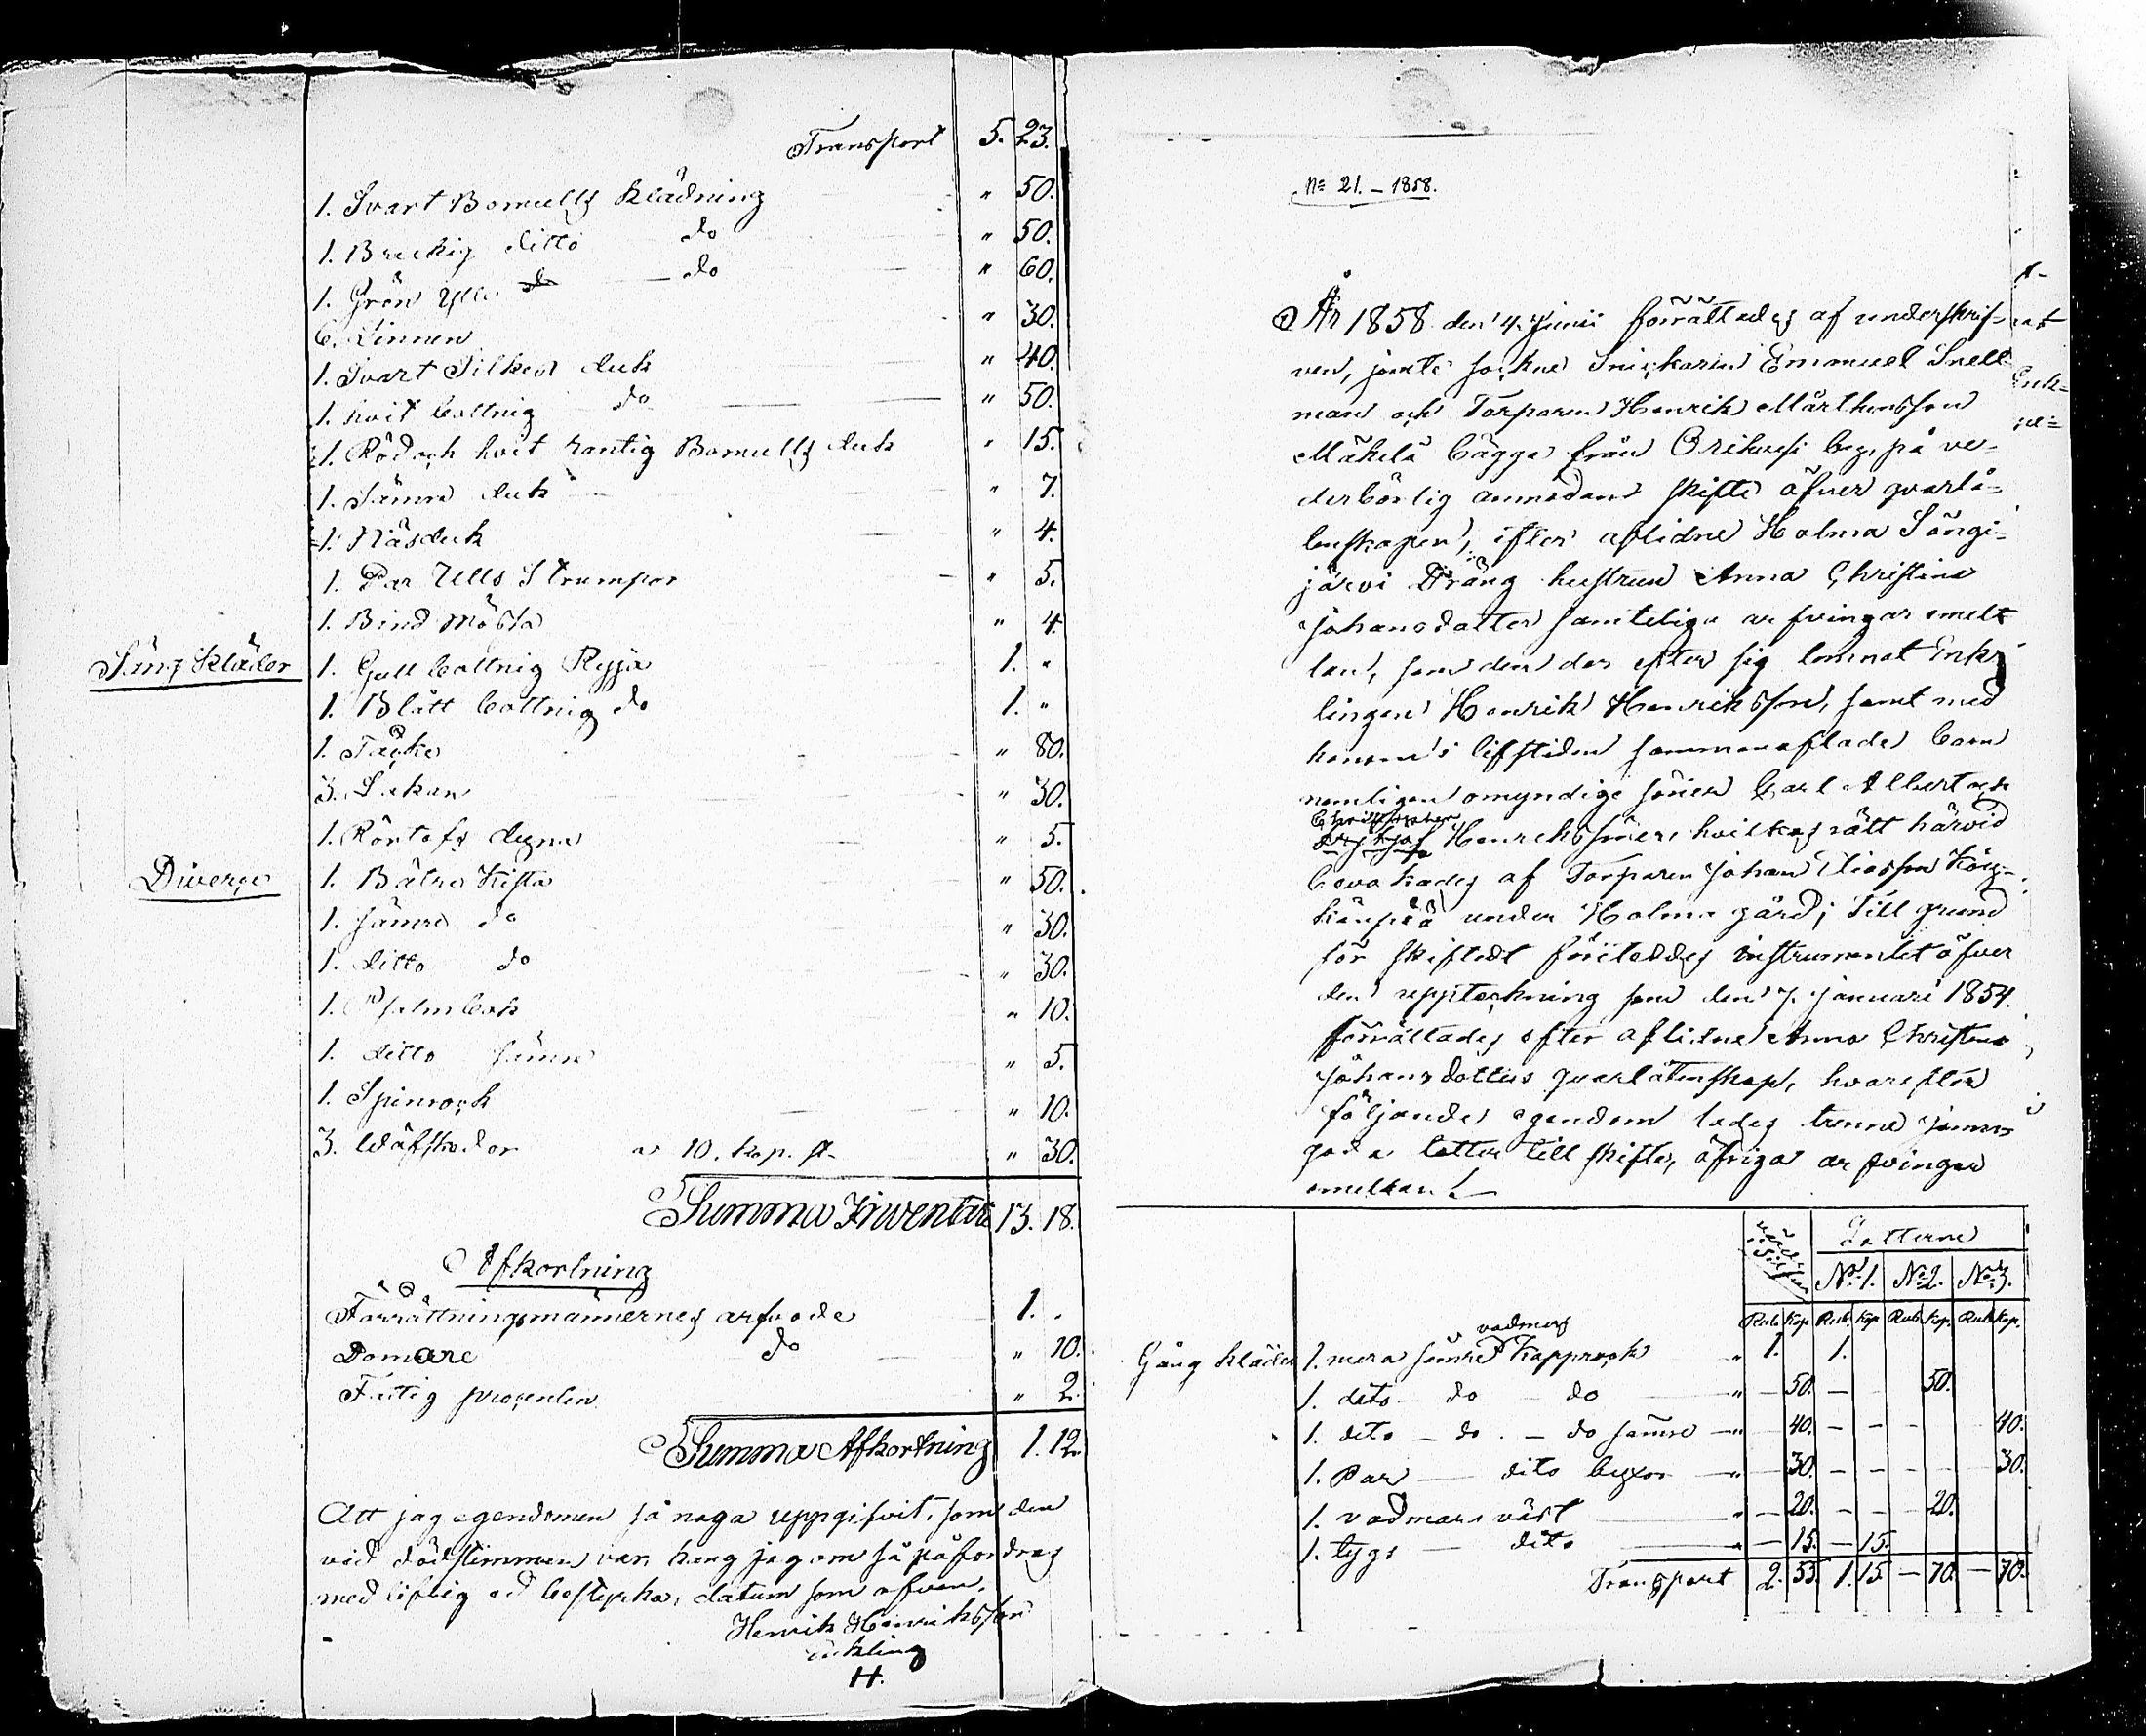 Transport 5. 23.
1. Svart Bomulls Klädning " 50.
1. Brokig ditto do " 50.
1. Grön Ylle do " 60.
6. Linnen " 30.
1. Svart Silkes duk " 40.
1. hvit Cottnig do " 50.
1. Röd och hvit rantig Bomulls duk " 15.
1. Sämre duk " 7.
1. Näsduk " 4.
1. Par Ulls Strumpor " 5.
1. Bind mössa " 4.
Säng Kläder 1. Gull Cottnig Ryja 1. "
1. Blått Cottnig do 1. "
1. Täcke " 80.
3. Lakan " 30.
1. dyna " 5.
Diverse 1. Bätre Kista " 50.
1. sämre do " 30.
1. ditto do " 30.
1. Psalmbok " 10.
1. ditto sämre " 5.
1. Spinrock " 10.
3. Wäfskedor a 10. kop. st. " 30.
Summa Inventarii 13. 18.
Afkortning
Förrättningsmännernes arfvode 1. "
Domare do " 10.
Fattig procenten " 2.
Summa Afkortning 1. 12.
Att jag egendomen så noga uppgifvit, som den
vid dödstimman var, kan jag om så påfordras
med liflig ed bestyrka, datum som ofvan.
Henrik Henriksson
enkling
H.
No 21. - 1858.
År 1858 den 4. Junii förrättades af underskrif-
ven, jemte sockne Snickaren Emanuel Snell-
man och Torparen Henrik Mårthensson
Mäkelä bägge från Orihvesi by, på ve-
derbörlig anmodan skifte öfver qvarlå-
tenskapen, efter aflidne Holma Sängi-
järvi Dräng hustrun Anna Christina
Johansdotter samteliga arfvingar emel-
lan, som den der efter sig lemnat Enk-
lingen Henrik Henriksson, samt med
honom i lifstiden sammanaflade barn
nemligen omyndige söner Carl Albert och
Christopher Henrikssöner, hvilkas rätt härvid
bevakades af Torparen Johan Eliasson
under Holma gård; Till grund
för skiftet företeddes instrumentet öfver
den uppteckning som den 7. Januari 1854.
förrättades efter aflidne Anna Christina
Johansdotters qvarlåtenskap, hvarefter
följande egendom lades trenne jemn
goda lotter till skifte, öfriga arfvingar
emellan:
värde i Silfver Lotterne
No 1. No 2. No 3.
Rub. Kop. Rub. Kop. Rub. Kop. Rub. Kop.
Gång kläder 1. mera sämre vadmars Kapprock " 1. 1.
1. dito do do " - 50. - 50.
1. dito - do - do sämre " - 40. - - - 40.
1. Par dito byxor " - 30. - - - 30.
1. vadmars väst " - 20. - - - 20.
1. tygs dito " - 15. - 15.
Transport 2. 55. 1. 15 - 70. - 70.